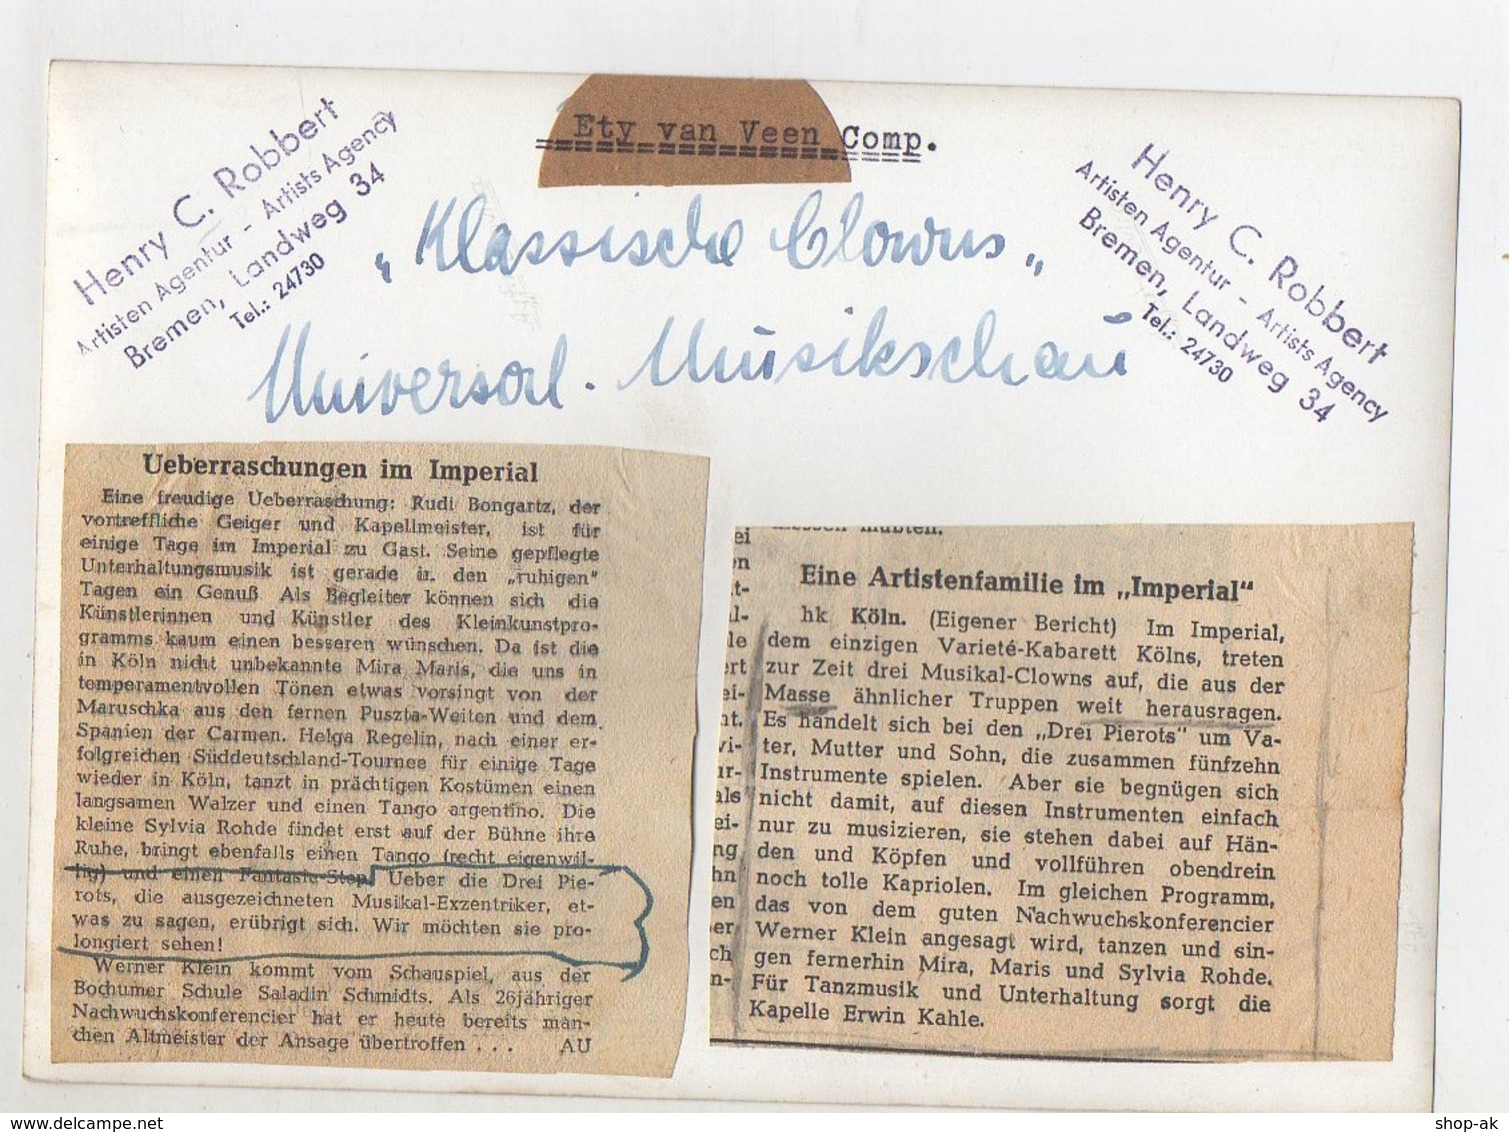 Ety van Veen Comp.
Henry C. Robbert
Artisten Agentur - Artists Agency
Bremen, Landweg 34
Tel.: 24730
Henry C. Robbert
Artisten Agentur - Artists Agency
Bremen, Landweg 34
Tel.: 24730
„Klassische Clowns„
Universal. Musikschau
Ueberraschungen im Imperial
Eine freudige Ueberraschung: Rudi Bongartz, der
vortreffliche Geiger und Kapellmeister, ist für
einige Tage im Imperial zu Gast. Seine gepflegte
Unterhaltungsmusik ist gerade in den „ruhigen"
Tagen ein Genuß Als Begleiter können sich die
Künstlerinnen und Künstler des Kleinkunstpro-
gramms kaum einen besseren wünschen. Da ist die
in Köln nicht unbekannte Mira Maris, die uns in
temperamentvollen Tönen etwas vorsingt von der
Maruschka aus den fernen Puszta-Weiten und dem
Spanien der Carmen. Helga Regelin, nach einer er-
folgreichen Süddeutschland-Tournee für einige Tage
wieder in Köln, tanzt in prächtigen Kostümen einen
langsamen Walzer und einen Tango argentino. Die
kleine Sylvia Rohde findet erst auf der Bühne ihre
Ruhe, bringt ebenfalls einen Tango (recht eigenwil-
lig) und einen Fantasie-Step. Ueber die Drei Pie-
rots, die ausgezeichneten Musikal-Exzentriker, et-
was zu sagen, erübrigt sich. Wir möchten sie pro-
longiert sehen!
Werner Klein kommt vom Schauspiel, aus der
Bochumer Schule Saladin Schmidts. Als 26jähriger
Nachwuchskonferencier hat er heute bereits man-
chen Altmeister der Ansage übertroffen . . . AU
Eine Artistenfamilie im „Imperial"
hk Köln. (Eigener Bericht) Im Imperial,
dem einzigen Varieté-Kabarett Kölns, treten
zur Zeit drei Musikal-Clowns auf, die aus der
Masse ähnlicher Truppen weit herausragen.
Es handelt sich bei den „Drei Pierots" um Va-
ter, Mutter und Sohn, die zusammen fünfzehn
Instrumente spielen. Aber sie begnügen sich
nicht damit, auf diesen Instrumenten einfach
nur zu musizieren, sie stehen dabei auf Hän-
den und Köpfen und vollführen obendrein
noch tolle Kapriolen. Im gleichen Programm,
das von dem guten Nachwuchskonferencier
Werner Klein angesagt wird, tanzen und sin-
gen fernerhin Mira, Maris und Sylvia Rohde.
Für Tanzmusik und Unterhaltung sorgt die
Kapelle Erwin Kahle.
shop-ak